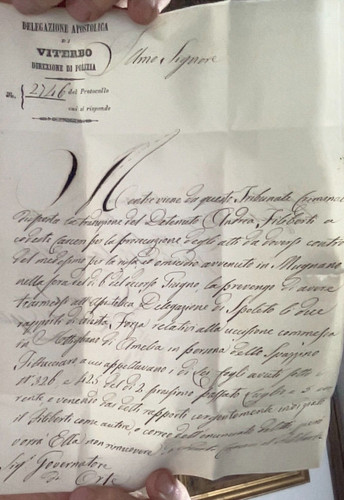 DELEGAZIONE APOSTOLICA
DI
VITERBO
DIREZIONE DI POLIZIA
N. 2746 del Protocollo
cui si risponde
Illmo Signore
Mentre viene da questo Tribunale Criminale
disposta la traduzione del Detenuto Andrea Filiberti a
codeste Carceri per la prosecuzione degli atti da doversi contro
del medesimo per la rissa ed omicidio avvenuto in Mugnano
nella sera del dì 6 del decorso Giugno, la prevengo di avere
trasmessi all'Apostolica Delegazione di Spoleto li due
rapporti di questa Forza relativi alla uccisione commessa
in di Amelia in persona dello
a cui appellavano i di Lei fogli avuti sotto i
N. 326, e 425 del dì 2 prossimo passato Luglio, e
e venendo dai detti rapporti urgentemente indiziato
il Filiberti come autore, o correo dell'enunciato delitto
vorrà Ella non rimuovere
Sigr Governatore
di Orte